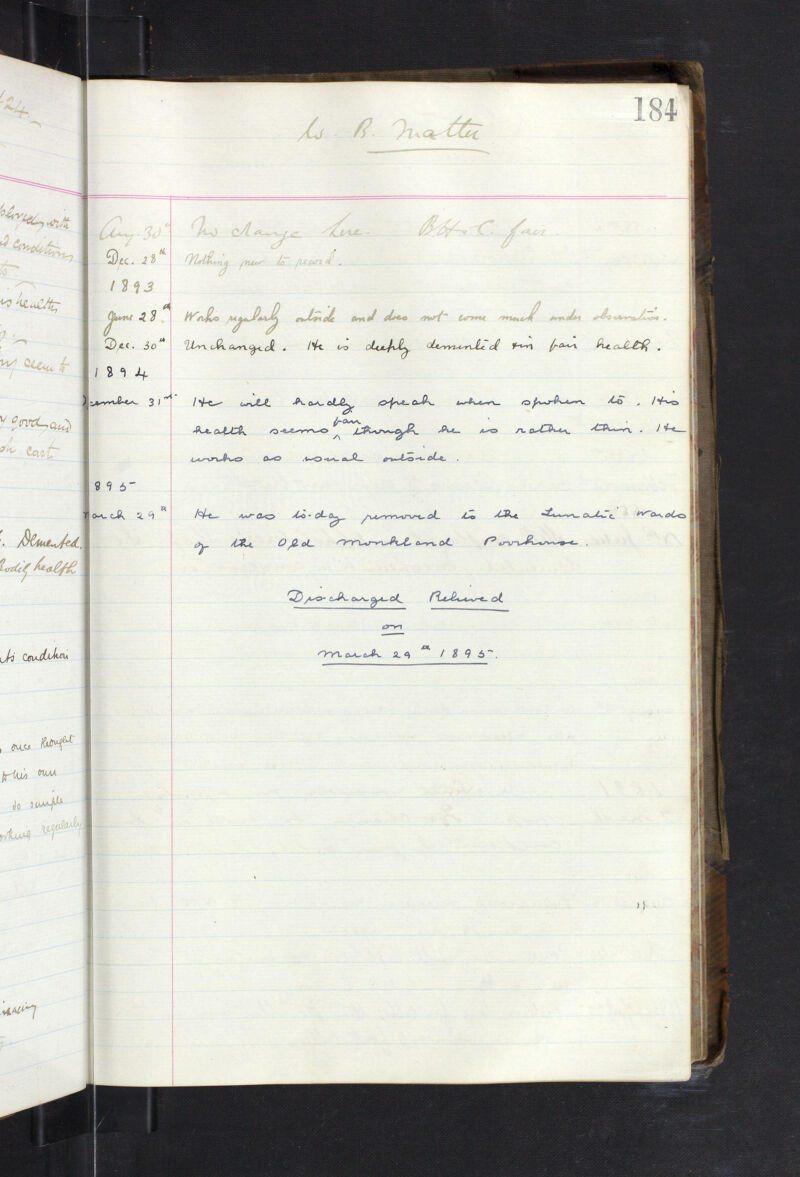 424.
184
W. B. Matter
ployed with
Aug. 30th No change here. B H & C. fair.
conditions
Dec. 28th Nothing new to record.
1893
is healthy
June 28.th Works regularly outside and does not come much under observation.
Dec. 30th Unchanged. He is deeply demented & in fair health.
1894
cember 31st He will hardly speak when spoken to. His
good and
health seems fair though he is rather thin. He
works as usual outside.
895
arch 29th He was to-day removed to the Lunatic Wards
Demented.
of the Old Monkland Poorhouse.
Bodily health
Discharged Relieved
on
ts condition
March 29th 1895.
once thought
to his own
do simple
working regularly